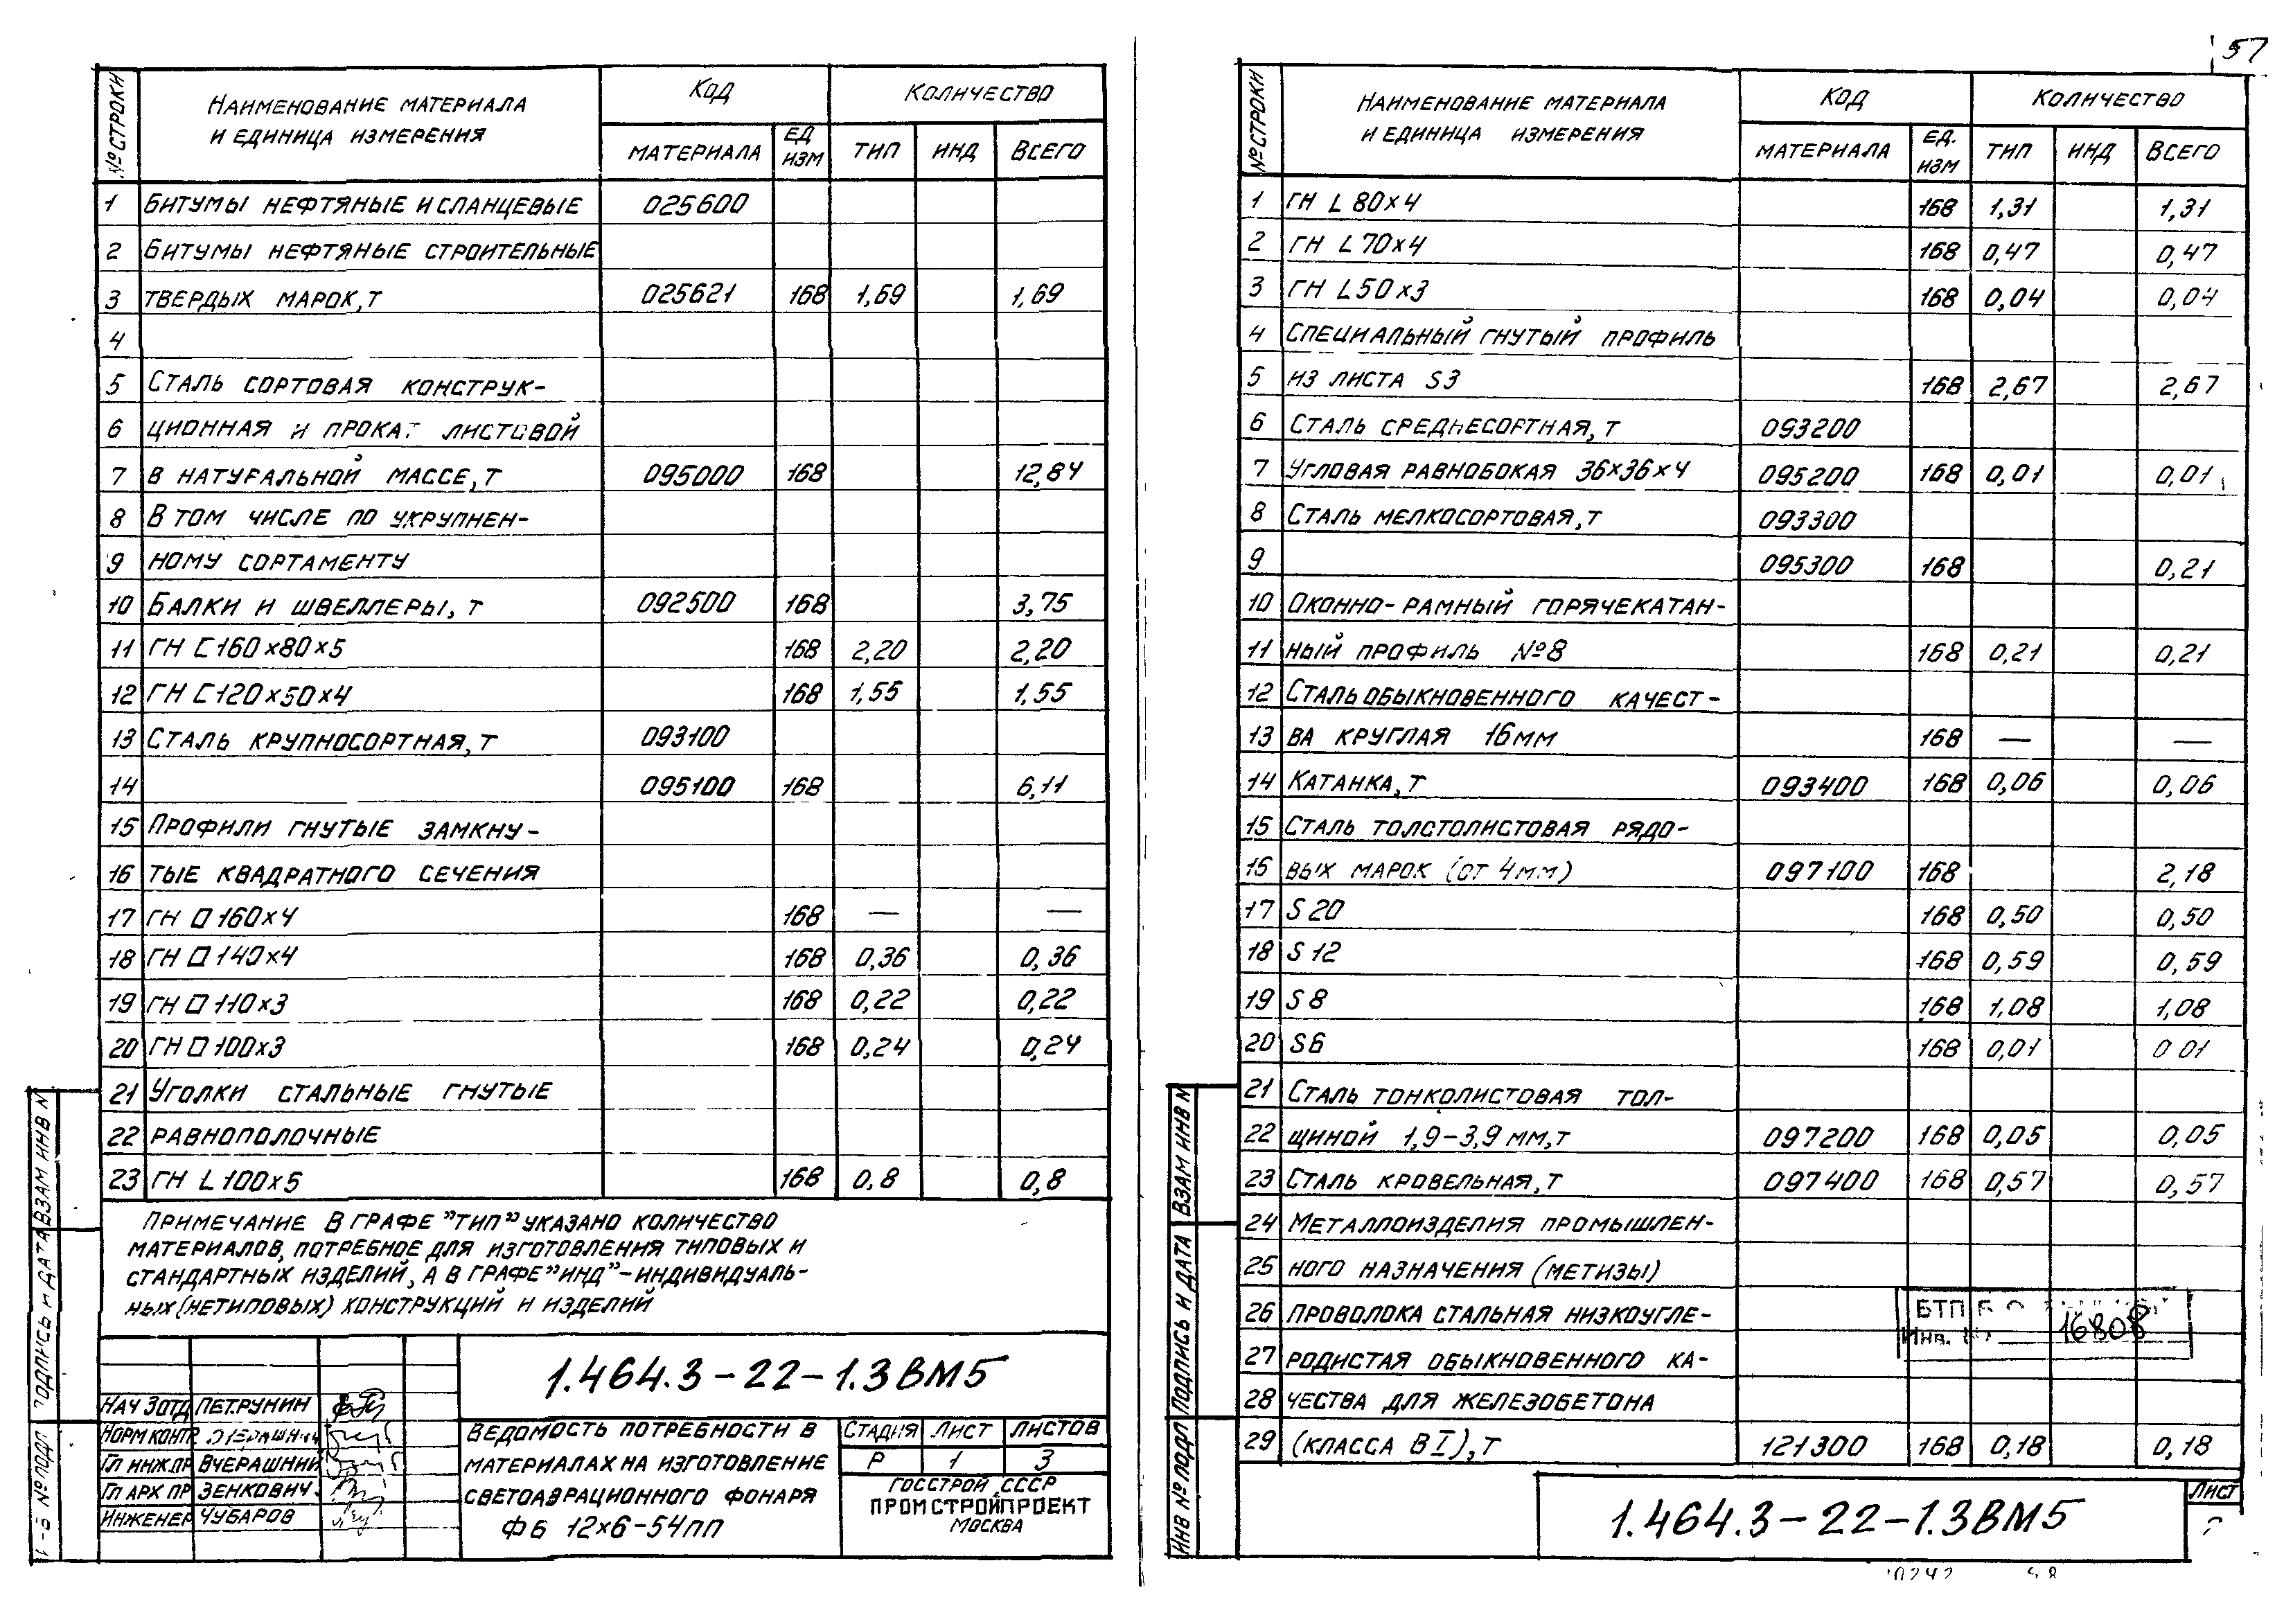 57
№ СТРОКИ НАИМЕНОВАНИЕ МАТЕРИАЛА И ЕДИНИЦА ИЗМЕРЕНИЯ КОД КОЛИЧЕСТВО
МАТЕРИАЛА ЕД ИЗМ ТИП ИНД ВСЕГО
1 БИТУМЫ НЕФТЯНЫЕ И СЛАНЦЕВЫЕ 025600
2 БИТУМЫ НЕФТЯНЫЕ СТРОИТЕЛЬНЫЕ
3 ТВЕРДЫХ МАРОК, Т 025621 168 1,69 1,69
4
5 СТАЛЬ СОРТОВАЯ КОНСТРУК-
6 ЦИОННАЯ И ПРОКАТ ЛИСТОВОЙ
7 В НАТУРАЛЬНОЙ МАССЕ, Т 095000 168 12,84
8 В ТОМ ЧИСЛЕ ПО УКРУПНЕН-
9 НОМУ СОРТАМЕНТУ
10 БАЛКИ И ШВЕЛЛЕРЫ, Т 092500 168 3,75
11 ГН [ 160×80×5 168 2,20 2,20
12 ГН [ 120×50×4 168 1,55 1,55
13 СТАЛЬ КРУПНОСОРТНАЯ, Т 093100
14 095100 168 6,11
15 ПРОФИЛИ ГНУТЫЕ ЗАМКНУ-
16 ТЫЕ КВАДРАТНОГО СЕЧЕНИЯ
17 ГН □ 160×4 168 — —
18 ГН □ 140×4 168 0,36 0,36
19 ГН □ 110×3 168 0,22 0,22
20 ГН □ 100×3 168 0,24 0,24
21 УГОЛКИ СТАЛЬНЫЕ ГНУТЫЕ
22 РАВНОПОЛОЧНЫЕ
23 ГН L 100×5 168 0,8 0,8
ПРИМЕЧАНИЕ В ГРАФЕ "ТИП" УКАЗАНО КОЛИЧЕСТВО
МАТЕРИАЛОВ, ПОТРЕБНОЕ ДЛЯ ИЗГОТОВЛЕНИЯ ТИПОВЫХ И
СТАНДАРТНЫХ ИЗДЕЛИЙ, А В ГРАФЕ "ИНД" – ИНДИВИДУАЛЬ-
НЫХ (НЕТИПОВЫХ) КОНСТРУКЦИЙ И ИЗДЕЛИЙ
1.464.3–22–1.3ВМ5
НАЧ ЗОТД ПЕТРУНИН
НОРМ КОНТР
ГЛ ИНЖ ПР ВЧЕРАШНИЙ
ГЛ АРХ ПР ЗЕНКОВИЧ
ИНЖЕНЕР ЧУБАРОВ
ВЕДОМОСТЬ ПОТРЕБНОСТИ В
МАТЕРИАЛАХ НА ИЗГОТОВЛЕНИЕ
СВЕТОАЭРАЦИОННОГО ФОНАРЯ
ФБ 12×6–54ПП
СТАДИЯ ЛИСТ ЛИСТОВ
Р 1 3
ГОССТРОЙ СССР
ПРОМСТРОЙПРОЕКТ
МОСКВА
ИНВ № ПОДЛ ПОДПИСЬ И ДАТА ВЗАМ ИНВ N
№ СТРОКИ НАИМЕНОВАНИЕ МАТЕРИАЛА И ЕДИНИЦА ИЗМЕРЕНИЯ КОД КОЛИЧЕСТВО
МАТЕРИАЛА ЕД. ИЗМ ТИП ИНД ВСЕГО
1 ГН L 80×4 168 1,31 1,31
2 ГН L 70×4 168 0,47 0,47
3 ГН L 50×3 168 0,04 0,04
4 СПЕЦИАЛЬНЫЙ ГНУТЫЙ ПРОФИЛЬ
5 ИЗ ЛИСТА S3 168 2,67 2,67
6 СТАЛЬ СРЕДНЕСОРТНАЯ, Т 093200
7 УГЛОВАЯ РАВНОБОКАЯ 36×36×4 095200 168 0,01 0,01
8 СТАЛЬ МЕЛКОСОРТОВАЯ, Т 093300
9 095300 168 0,21
10 ОКОННО-РАМНЫЙ ГОРЯЧЕКАТАН-
11 НЫЙ ПРОФИЛЬ №8 168 0,21 0,21
12 СТАЛЬ ОБЫКНОВЕННОГО КАЧЕСТ-
13 ВА КРУГЛАЯ 16ММ 168 — —
14 КАТАНКА, Т 093400 168 0,06 0,06
15 СТАЛЬ ТОЛСТОЛИСТОВАЯ РЯДО-
16 ВЫХ МАРОК (ОТ 4ММ) 097100 168 2,18
17 S 20 168 0,50 0,50
18 S 12 168 0,59 0,59
19 S 8 168 1,08 1,08
20 S6 168 0,01 0 01
21 СТАЛЬ ТОНКОЛИСТОВАЯ ТОЛ-
22 ЩИНОЙ 1,9–3,9 ММ, Т 097200 168 0,05 0,05
23 СТАЛЬ КРОВЕЛЬНАЯ, Т 097400 168 0,57 0,57
24 МЕТАЛЛОИЗДЕЛИЯ ПРОМЫШЛЕН-
25 НОГО НАЗНАЧЕНИЯ (МЕТИЗЫ)
26 ПРОВОЛОКА СТАЛЬНАЯ НИЗКОУГЛЕ-
27 РОДИСТАЯ ОБЫКНОВЕННОГО КА-
28 ЧЕСТВА ДЛЯ ЖЕЛЕЗОБЕТОНА
29 (КЛАССА ВI), Т 121300 168 0,18 0,18
БТП
Инв. 16808
1.464.3–22–1.3ВМ5
ЛИСТ
ИНВ № ПОДЛ ПОДПИСЬ И ДАТА ВЗАМ ИНВ N